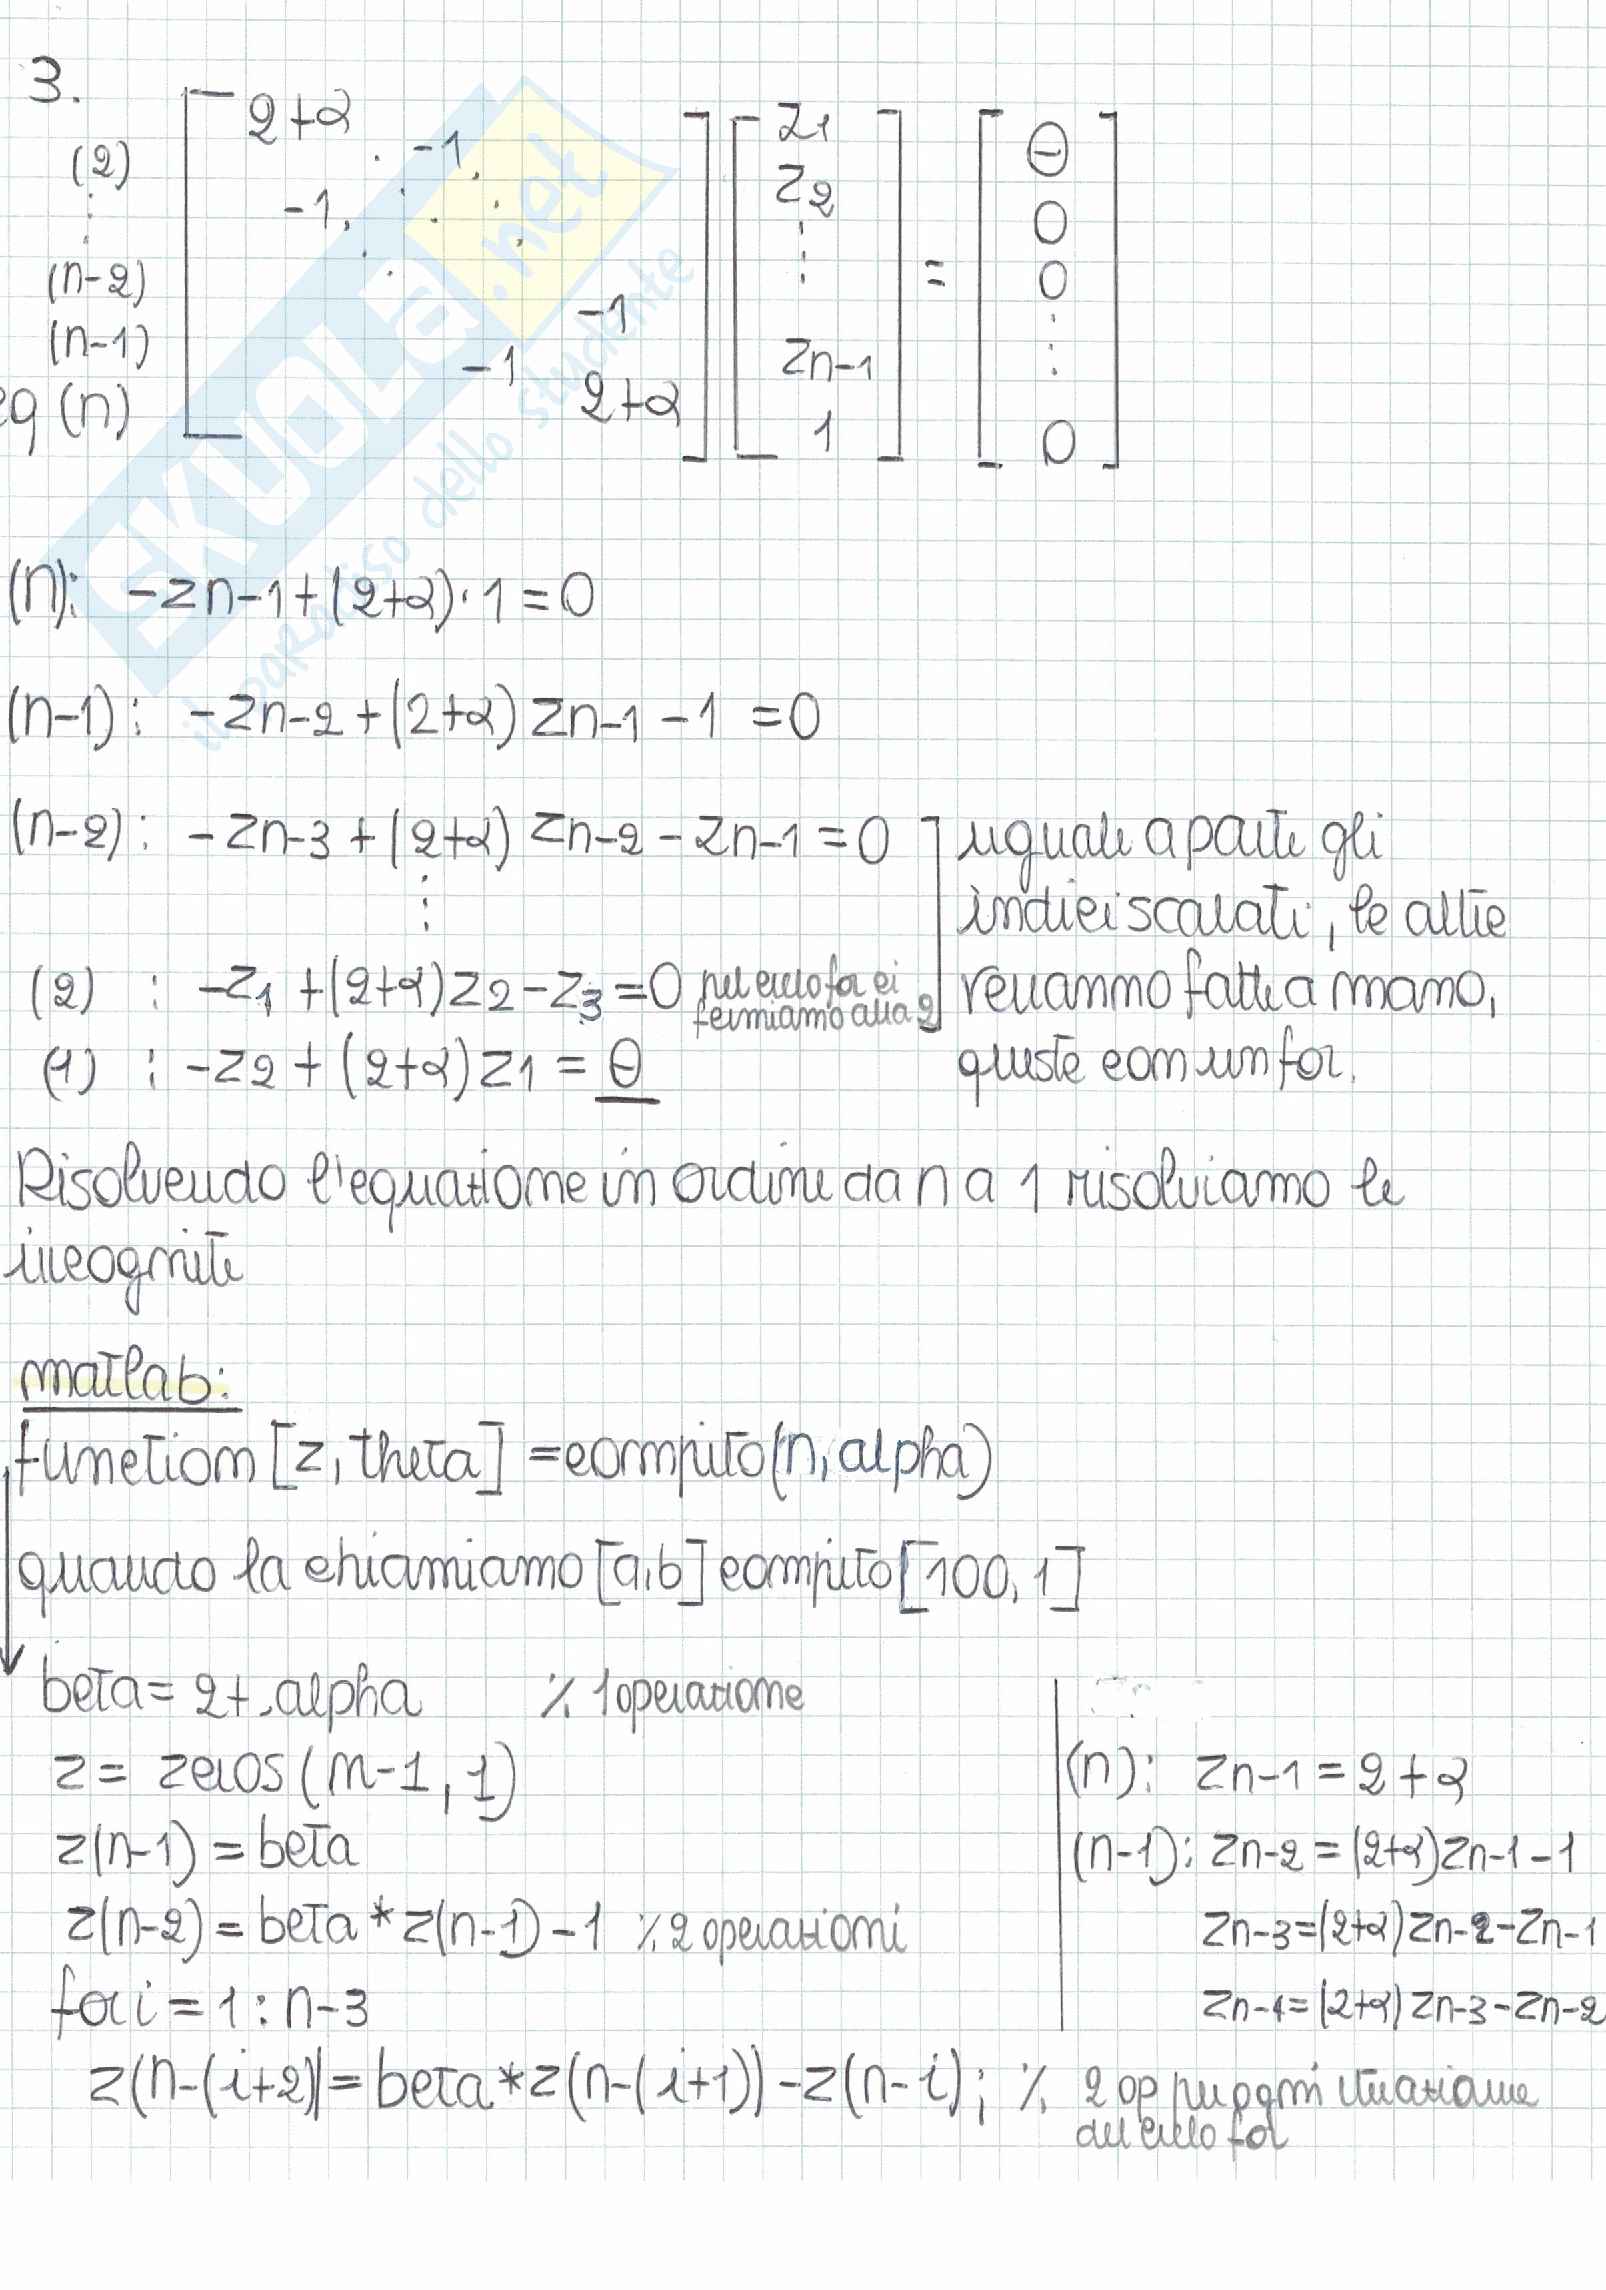 3.
(2)
(n-2)
(n-1)
eq (n)
2+α
-1
-1
-1
-1
2+α
z1
z2
zn-1
1
=
θ
0
0
0
(n): -zn-1+(2+α)·1=0
(n-1): -zn-2+(2+α) zn-1 -1 =0
(n-2): -zn-3+(2+α) zn-2-zn-1=0
(2) : -z1+(2+α)z2-z3=0 nel ciclo for ci
fermiamo alla 2
(1) : -z2+(2+α)z1=θ
uguale a parte gli
indici scalati, le altre
verranno fatte a mano,
queste con un for.
Risolvendo l'equazione in ordine da n a 1 risolviamo le
incognite
matlab:
function [z, theta] =compito(n, alpha)
quando la chiamiamo [a,b] compito[100,1]
beta=2+.alpha % 1 operazione
z= zeros(n-1,1)
z(n-1)=beta
z(n-2)=beta*z(n-1)-1 % 2 operazioni
for i=1:n-3
z(n-(i+2)=beta*z(n-(i+1))-z(n-i); % 2 op per ogni iterazione
del ciclo for
(n): zn-1=2+α
(n-1): zn-2=(2+α)zn-1-1
zn-3=(2+α)zn-2-zn-1
zn-4=(2+α)zn-3-zn-2
SKUOLA.net
il paradiso dello studente